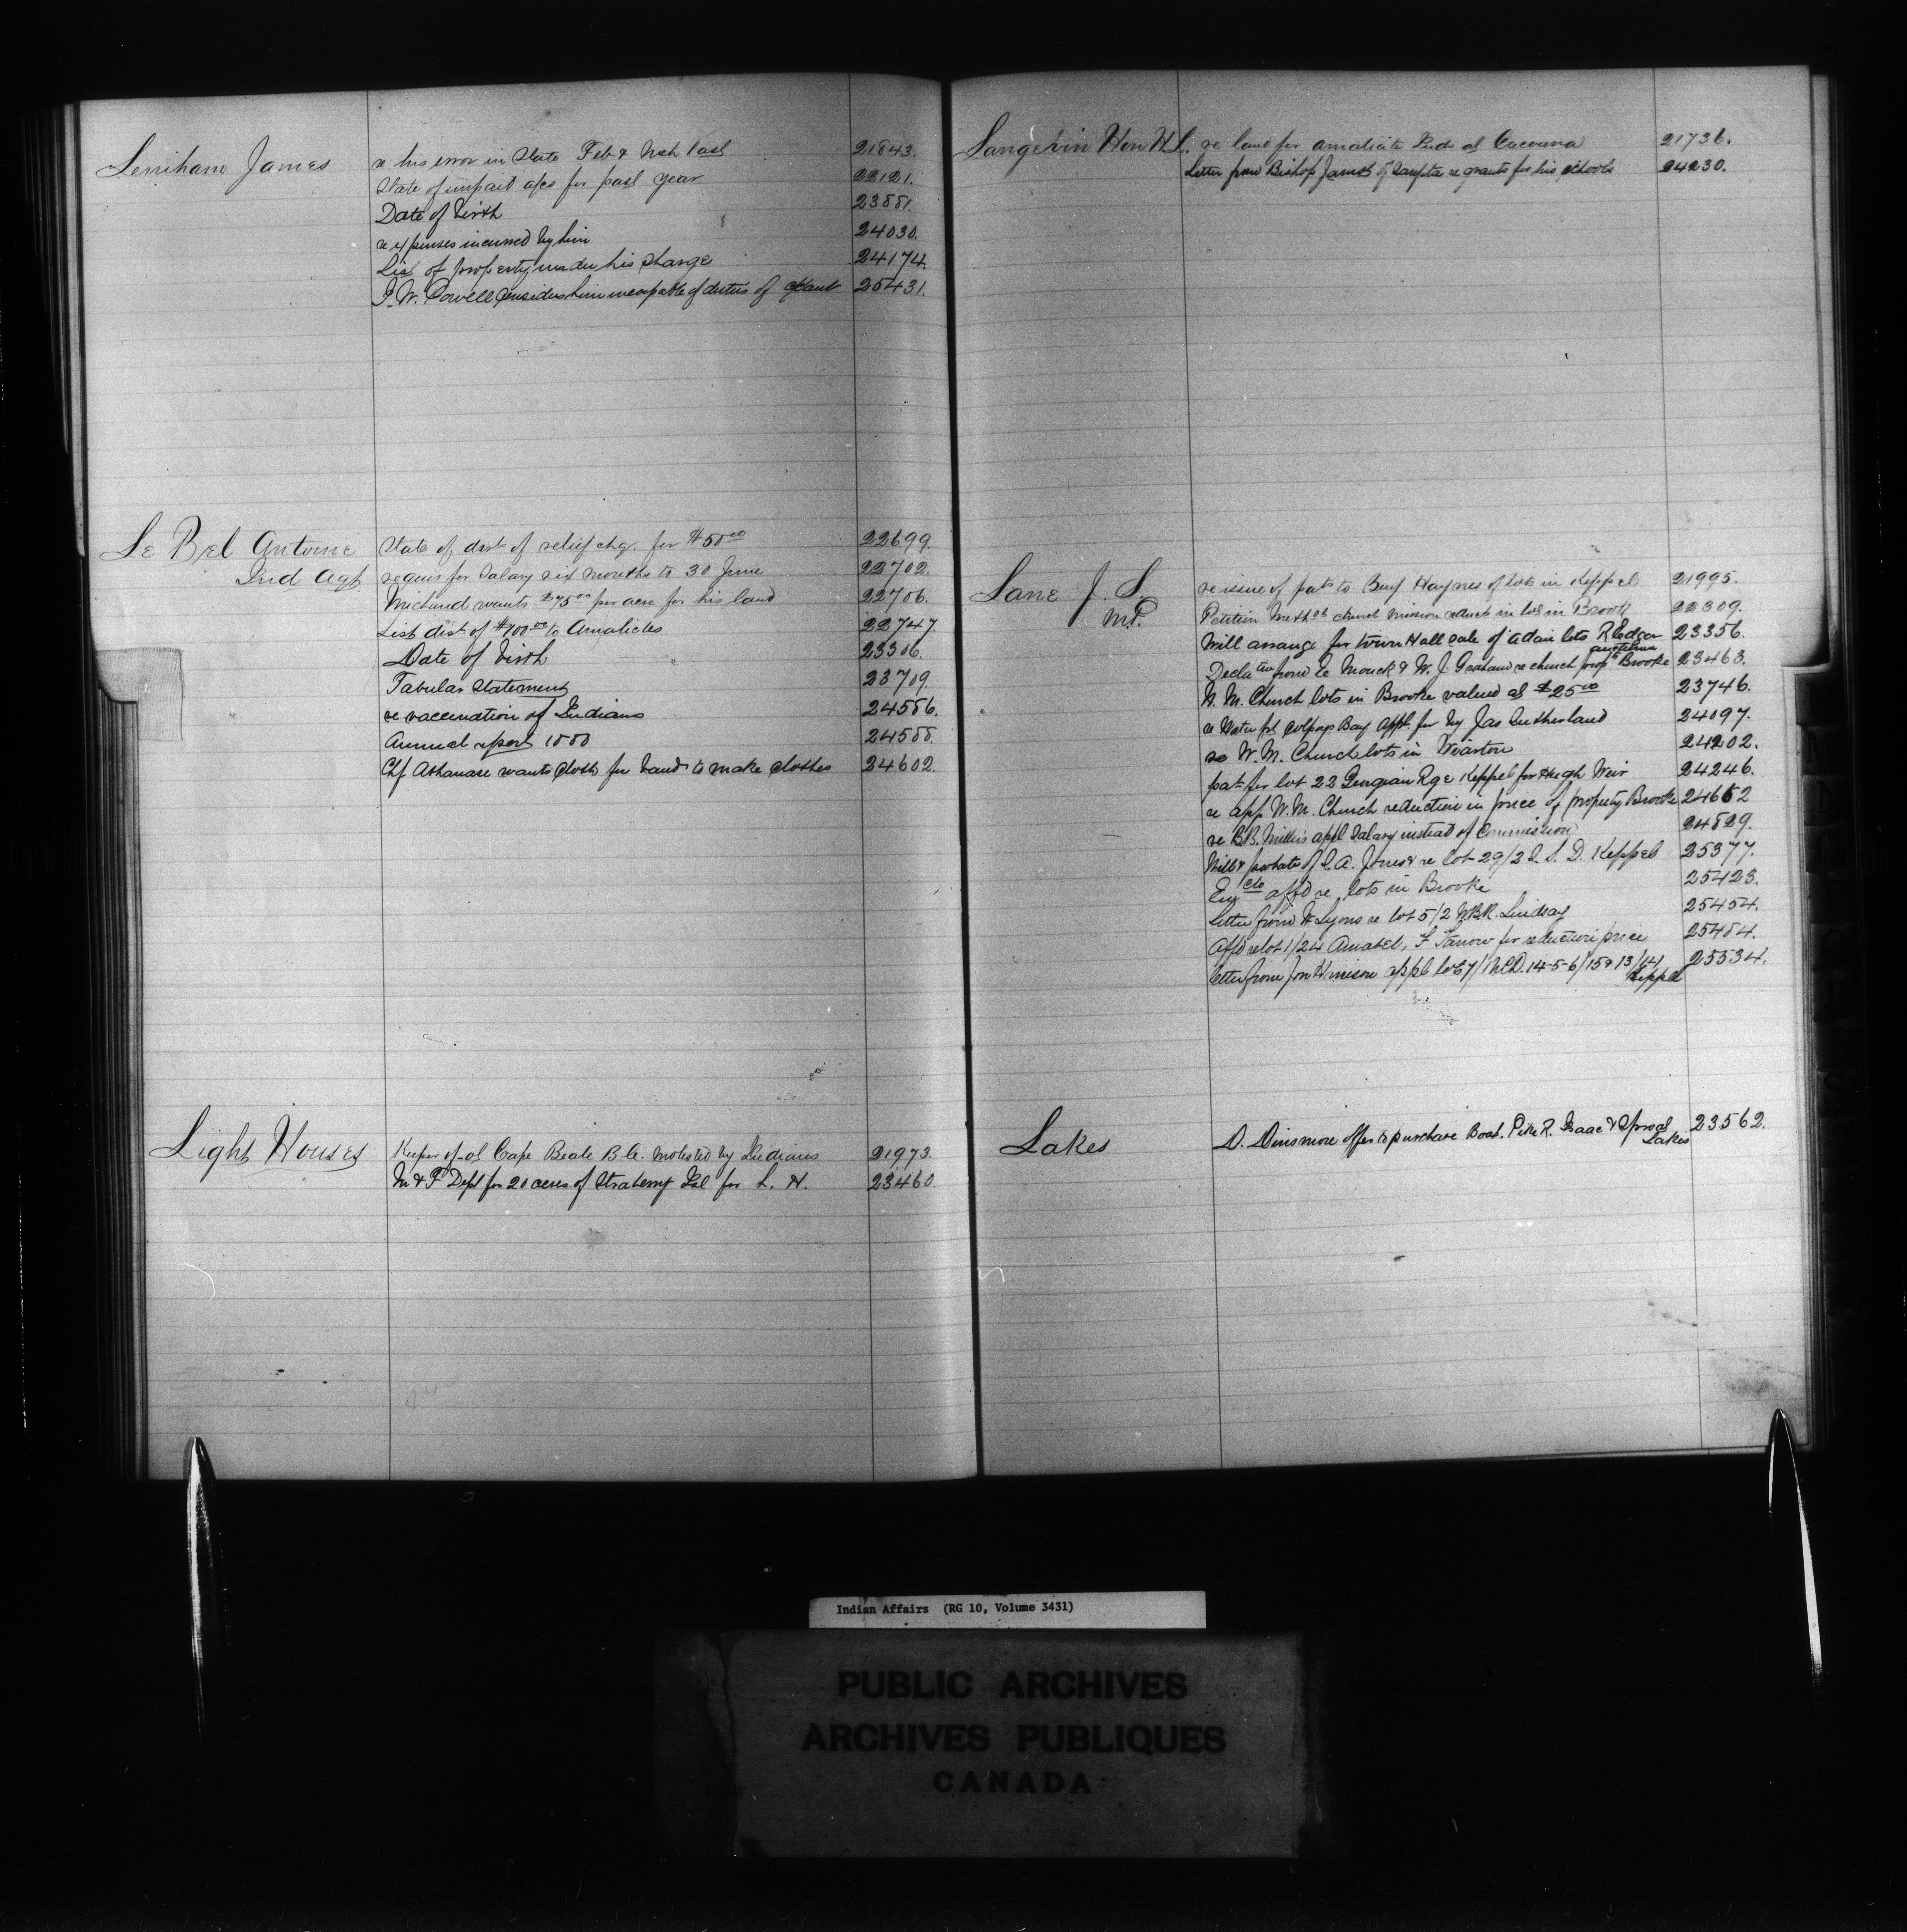 Lenihan James re his error in State Feb & Mch last 21843.
State of unpaid a/cs for past year 22121.
Date of birth 23881.
re expenses incurred by him 24030.
List of property under his charge 24174.
I. W. Powell considers him incapable of duties of 25431.
Le Bel Antoine State of dist of relief chq. for $50 00 22699.
Ind Agt requis for Salary six months to 30 June 22702.
Michaud wants $75 00 per acre for his land 22706.
List dist of $100 00 to Amalicites 22747.
Date of birth 23306.
Tabular Statement 23709.
re vaccination of Indians 24586.
Annual report 1880 24588.
Chf Athanase wants cloth for band to make clothes 24602.
Light Houses Keeper of at Cape Beale B.C. molested by Indians 21973.
M & F Dept for 20 acres of Strawberry Isl for L. H. 23460.
Langevin Hon H L. re land for Amalicite Inds at Cacouna 21736.
Letter from Bishop of re grants for his schools 24230.
Lane J. S. re issue of pat to Benj Haynes of lots in Keppel 21995.
M.P. Petition Meth church mission reduct in lots in Brooke 22309.
Will arrange for town Hall sale of Adair lots 23356.
Decla from & W. J. Graham re church prop Brooke 23463.
W. M. Church lots in Brooke valued at $25 00 23746.
re Water frt Colpoys Bay appl. for by Jas Sutherland 24097.
re W. M. Church lots in Wiarton 24202.
pat for lot 22 Georgian Rge Keppel for Hugh Weir 24246.
re app W. M. Church reduction in price of property Brooke 24652
re B.B. Millers appl Salary instead of Commission 24829.
Will & probate of A. Jones & re lot 29/2 S. D. Keppel 25377.
affd re lots in Brooke 25423.
letter from Lyons re lot 5/2 Lindsay 25454.
Affd re lot 1/24 Amabel, F for reduction price 25484.
letter from appl lots 7/1 14-5-6/15 & 13/14 25534.
Keppel
Lakes D. Dinsmore offer to purchase Boat, Pike R. Isaac & Sproat 23562.
Lakes
Indian Affairs (RG 10, Volume 3431)
PUBLIC ARCHIVES
ARCHIVES PUBLIQUES
CANADA